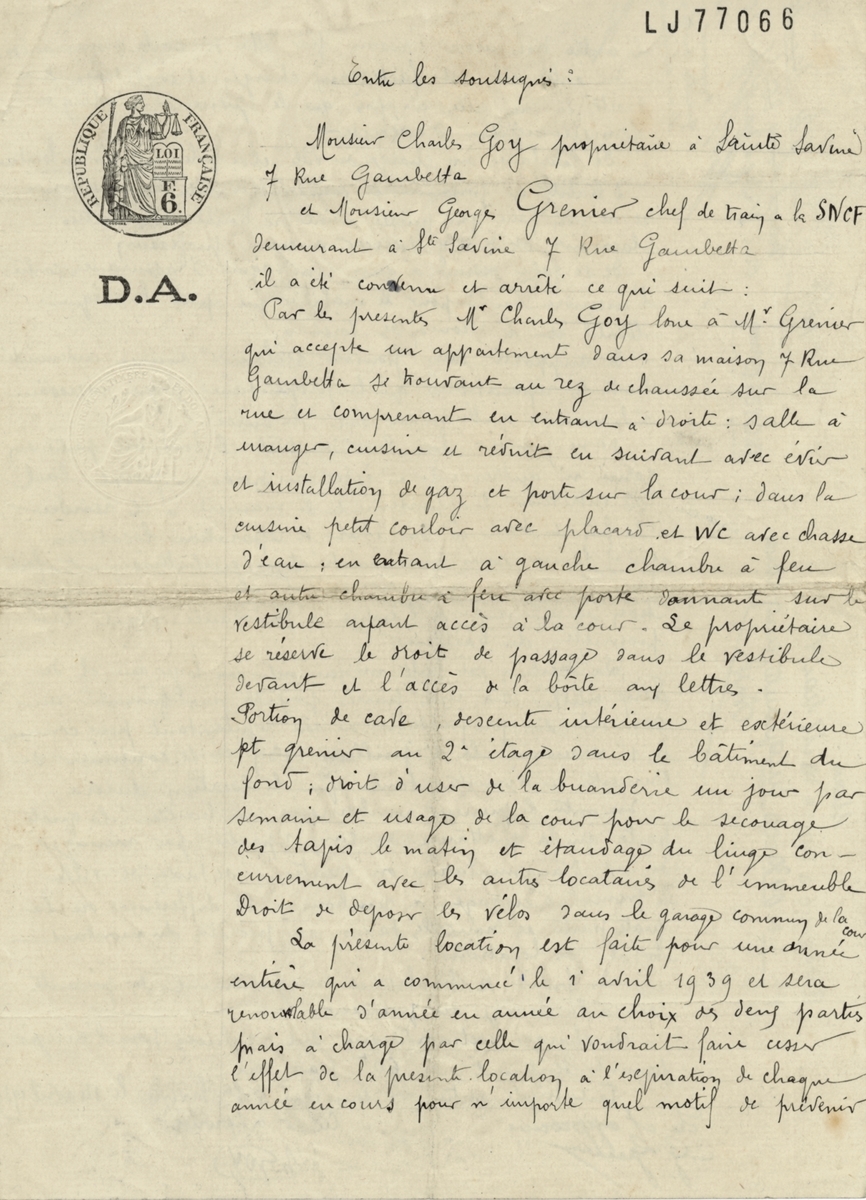 LJ77066
Entre les soussignés :
RÉPUBLIQUE FRANÇAISE
LOI
F.
6.
D.A.
Monsieur Charles Goy propriétaire à Sainte Savine
7 Rue Gambetta
et Monsieur Georges Grenier chef de train a la SNCF
demeurant à Ste Savine 7 Rue Gambetta
il a été convenu et arrêté ce qui suit :
Par les présentes Mr Charles Goy loue à Mr Grenier
qui accepte un appartement dans sa maison 7 Rue
Gambetta se trouvant au rez de chaussée sur la
rue et comprenant en entrant à droite : salle à
manger, cuisine et réduit en suivant avec évier
et installation de gaz et porte sur la cour ; dans la
cuisine petit couloir avec placard et WC avec chasse
d'eau ; en entrant à gauche chambre à feu
et autre chambre à feu avec porte donnant sur le
vestibule ayant accès à la cour. Le propriétaire
se réserve le droit de passage dans le vestibule
devant et l'accès de la boîte aux lettres.
Portion de cave, descente intérieure et extérieure
pt grenier au 2e étage dans le bâtiment du
fond ; droit d'user de la buanderie un jour par
semaine et usage de la cour pour le secouage
des tapis le matin et étandage du linge con-
curremment avec les autres locataires de l'immeuble
Droit de déposer les vélos dans le garage commun de la cour
La présente location est faite pour une année
entière qui a commencé le 1r avril 1939 et sera
renouvelable d'année en année au choix des deux parties
mais à charge par celle qui voudrait faire cesser
l'effet de la présente location à l'expiration de chaque
année en cours pour n'importe quel motif de prévenir